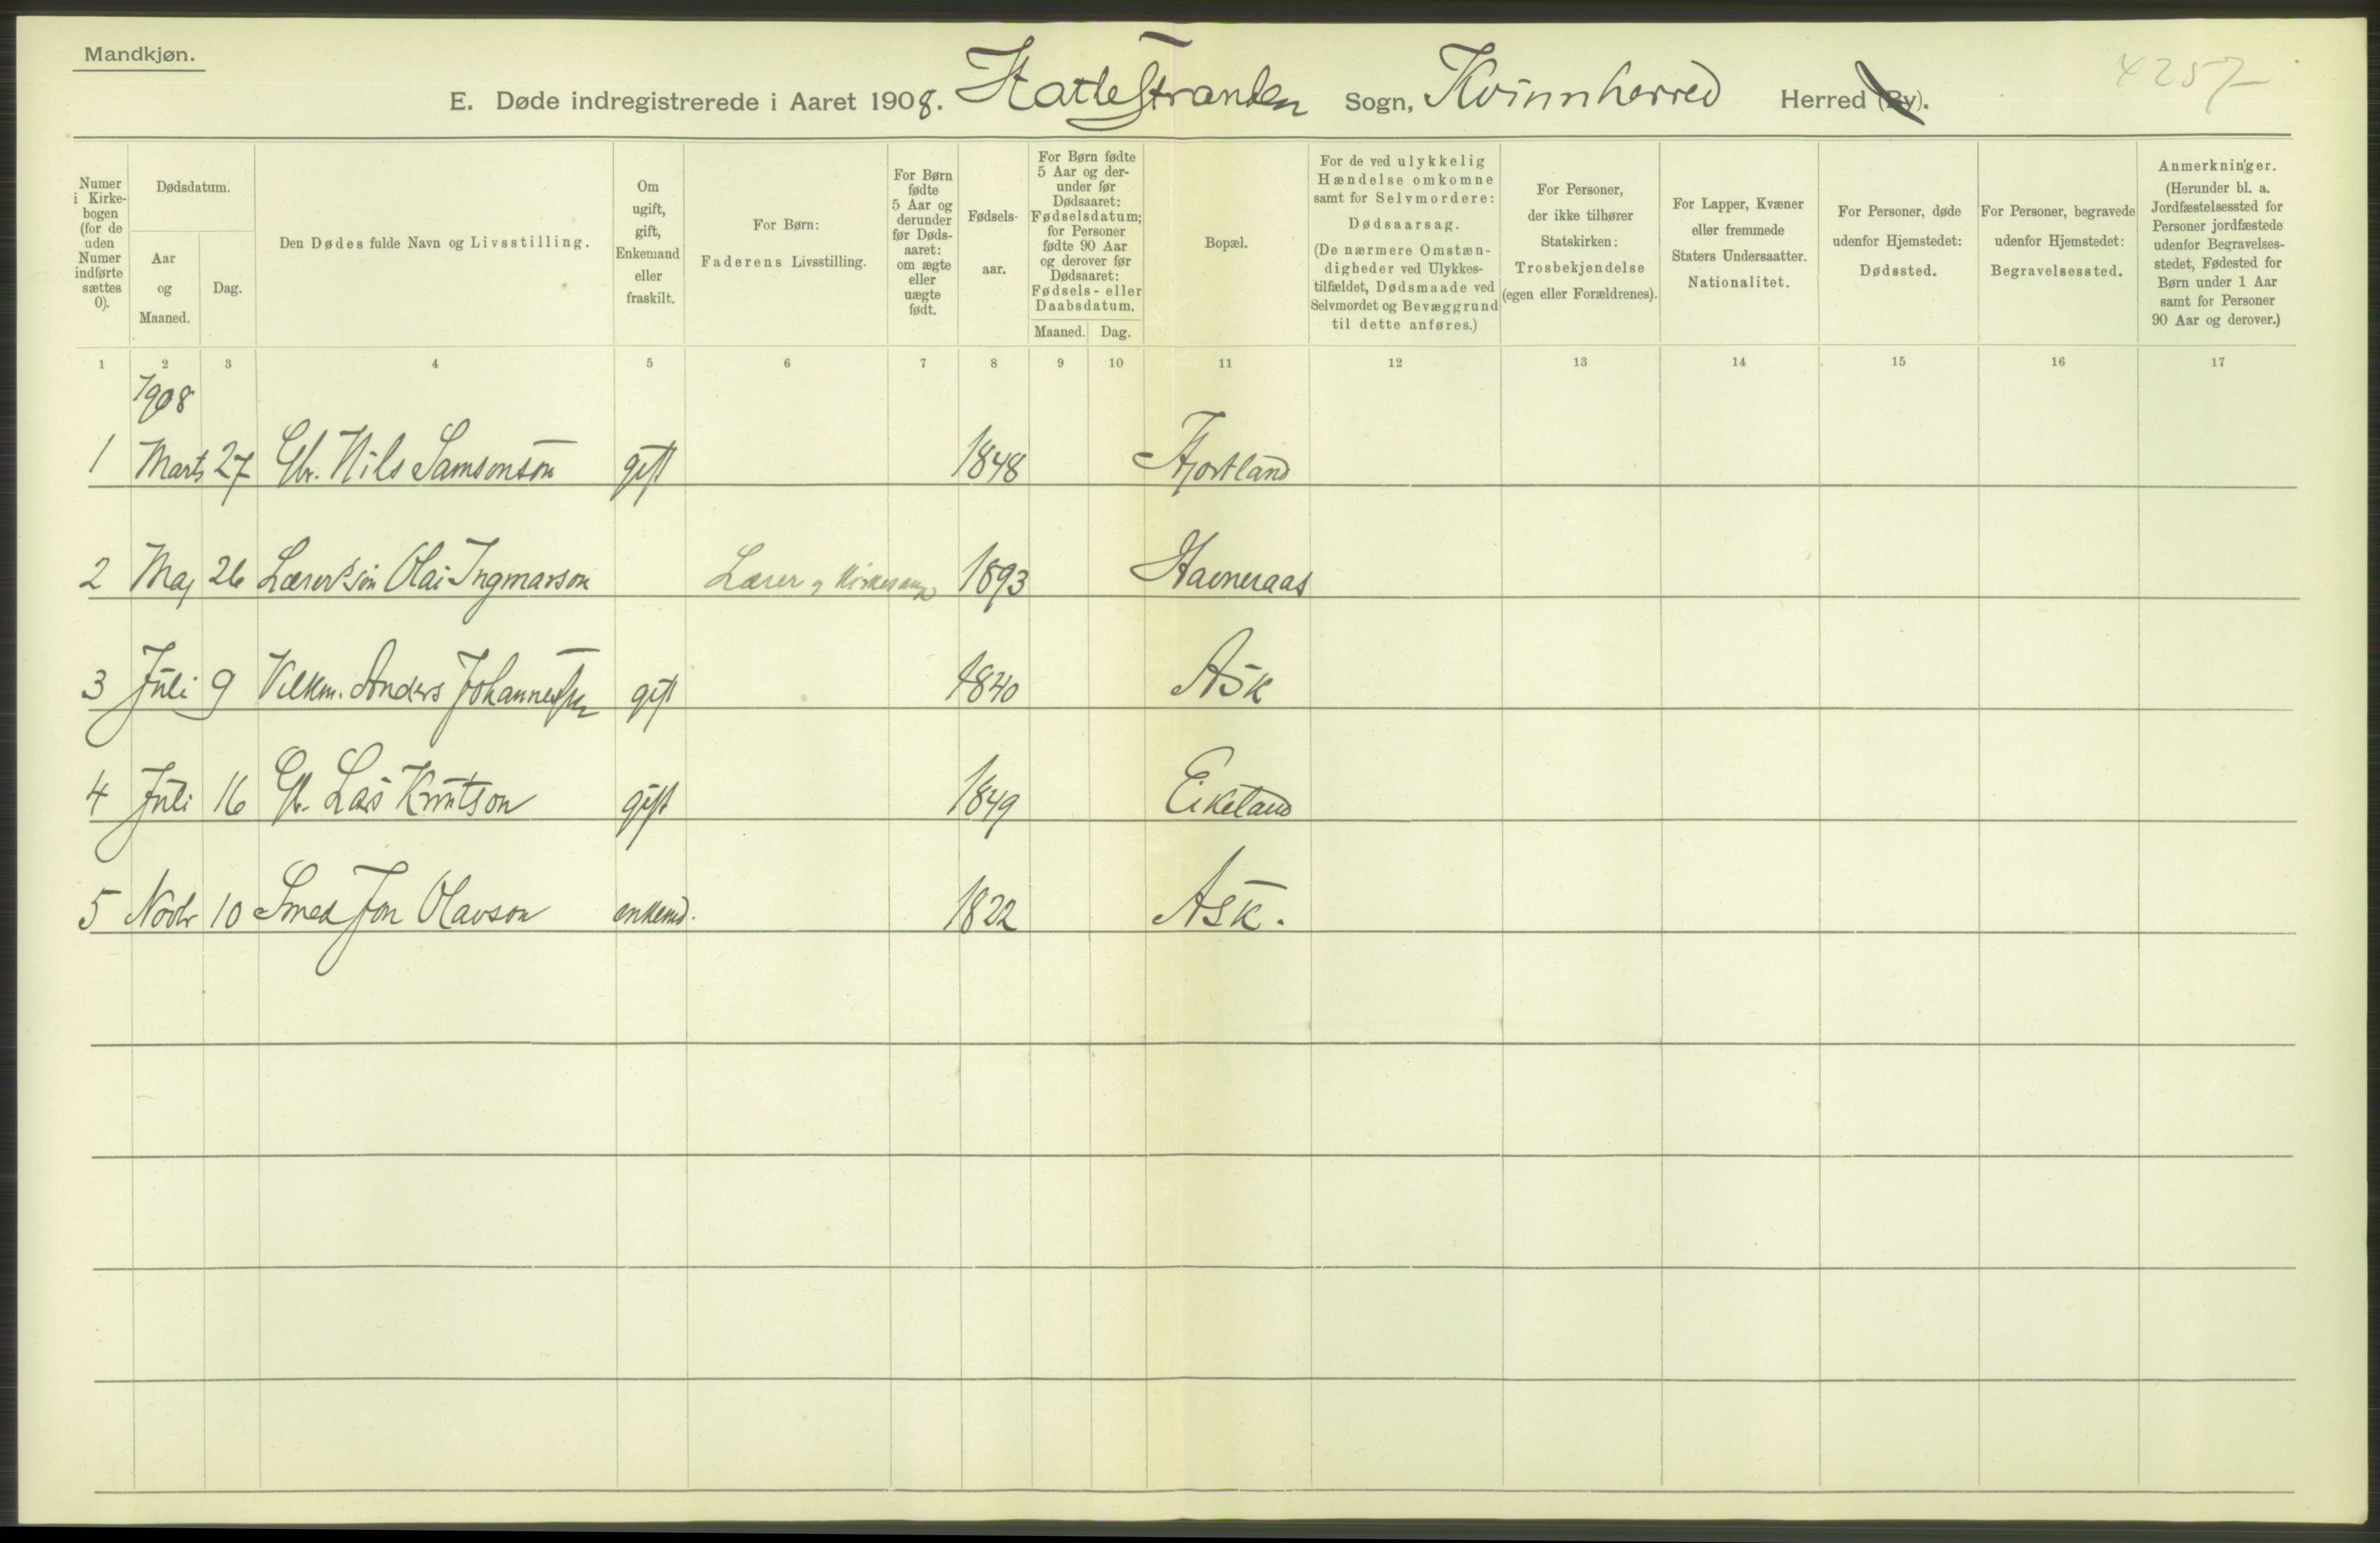 Mandkjøn.
4257
E. Døde indregistrerede i Aaret 1908. Hattestranden Sogn, Kvinnherred Herred (By).
Numer i Kirkebogen (for de uden Numer indførte sættes 0).
Dødsdatum.
Aar og Maaned.
Dag.
Den Dødes fulde Navn og Livsstilling.
Om ugift, gift, Enkemand eller fraskilt.
For Børn:
Faderens Livsstilling.
For Børn fødte 5 Aar og derunder før Dødsaaret: om ægte eller uægte født.
Fødselsaar.
For Børn fødte 5 Aar og derunder før Dødsaaret: Fødselsdatum; for Personer fødte 90 Aar og derover før Dødsaaret: Fødsels- eller Daabsdatum.
Maaned. Dag.
Bopæl.
For de ved ulykkelig Hændelse omkomne samt for Selvmordere:
Dødsaarsag.
(De nærmere Omstændigheder ved Ulykkestilfældet, Dødsmaade ved Selvmordet og Bevæggrund til dette anføres.)
For Personer, der ikke tilhører Statskirken:
Trosbekjendelse
(egen eller Forældrenes).
For Lapper, Kvæner eller fremmede Staters Undersaatter.
Nationalitet.
For Personer, døde udenfor Hjemstedet:
Dødssted.
For Personer, begravede udenfor Hjemstedet:
Begravelsessted.
Anmerkninger.
(Herunder bl. a. Jordfæstelsessted for Personer jordfæstede udenfor Begravelsesstedet, Fødested for Børn under 1 Aar samt for Personer 90 Aar og derover.)
1 2 3 4 5 6 7 8 9 10 11 12 13 14 15 16 17
1908
1 Marts 27 Gbr. Nils Samsonson gift 1848 Fjortland
2 Maj 26 Lærers søn Olai Ingmarson Lærer og Kirkesanger 1893 Havneraas
3 Juli 9 Vilkm. Anders Johannesson gift 1840 Ask
4 Juli 16 Gb. Las Knutson gift 1849 Eikeland
5 Novbr 10 Smed Jon Olavson enkemd. 1822 Ask.